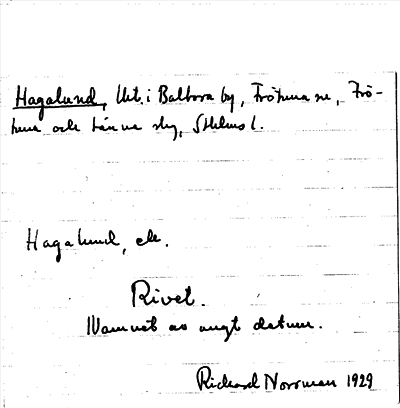 Hagalund, Utt. i Balbora by, Frötuna sn, Frö-
tuna och Länna skg, Sthlms l.
Hagalund, ek.
Rivet.
Namnet av ungt datum.
Richard Norrman 1929